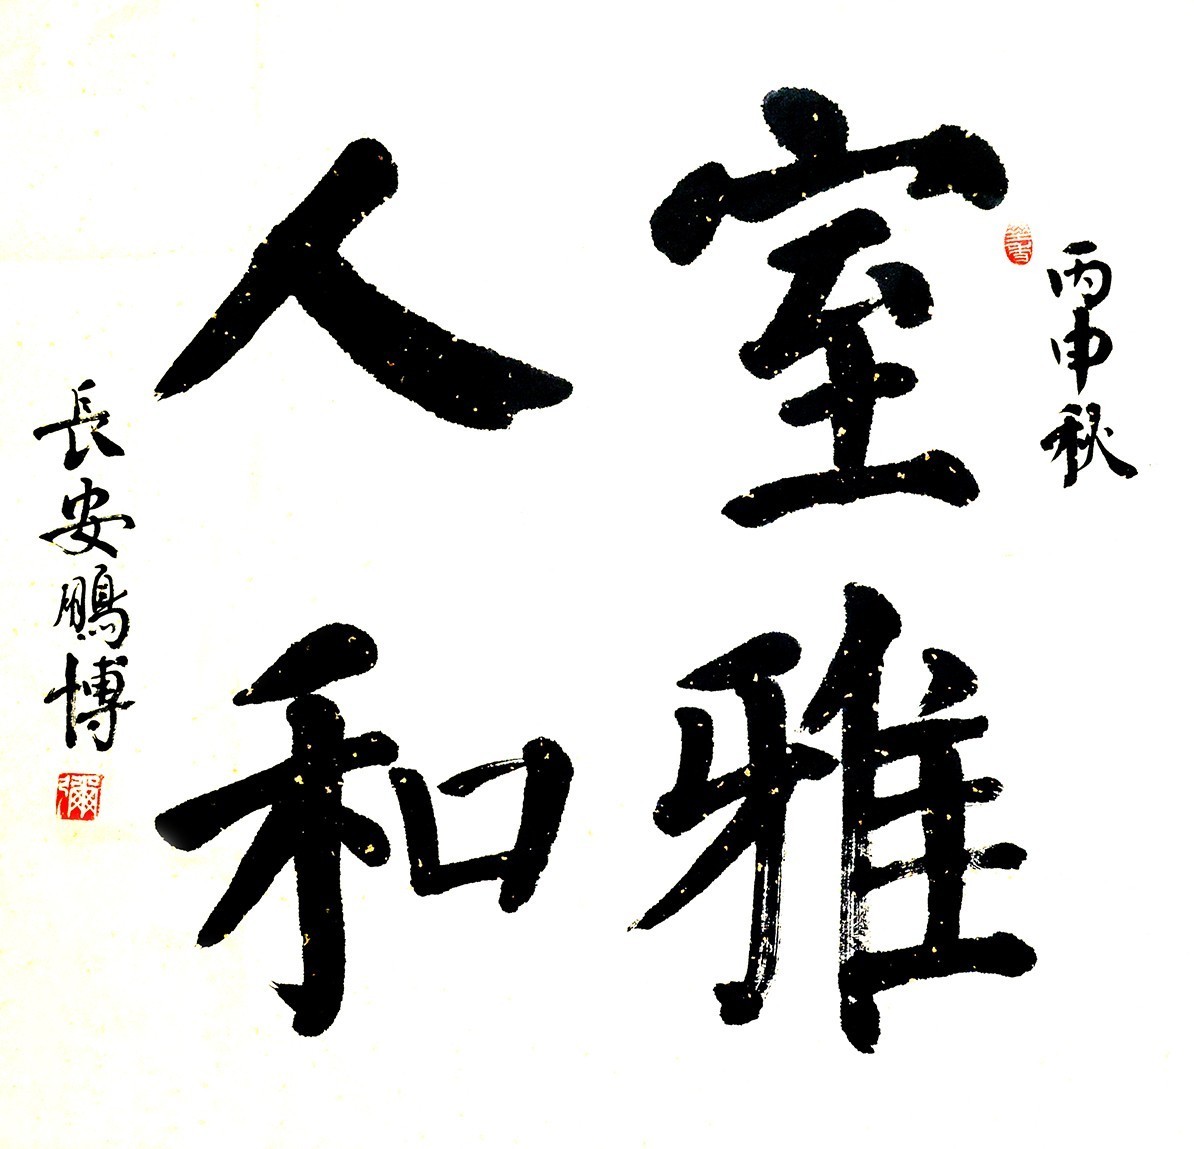 丙申秋
室雅
人和
長安鵬博